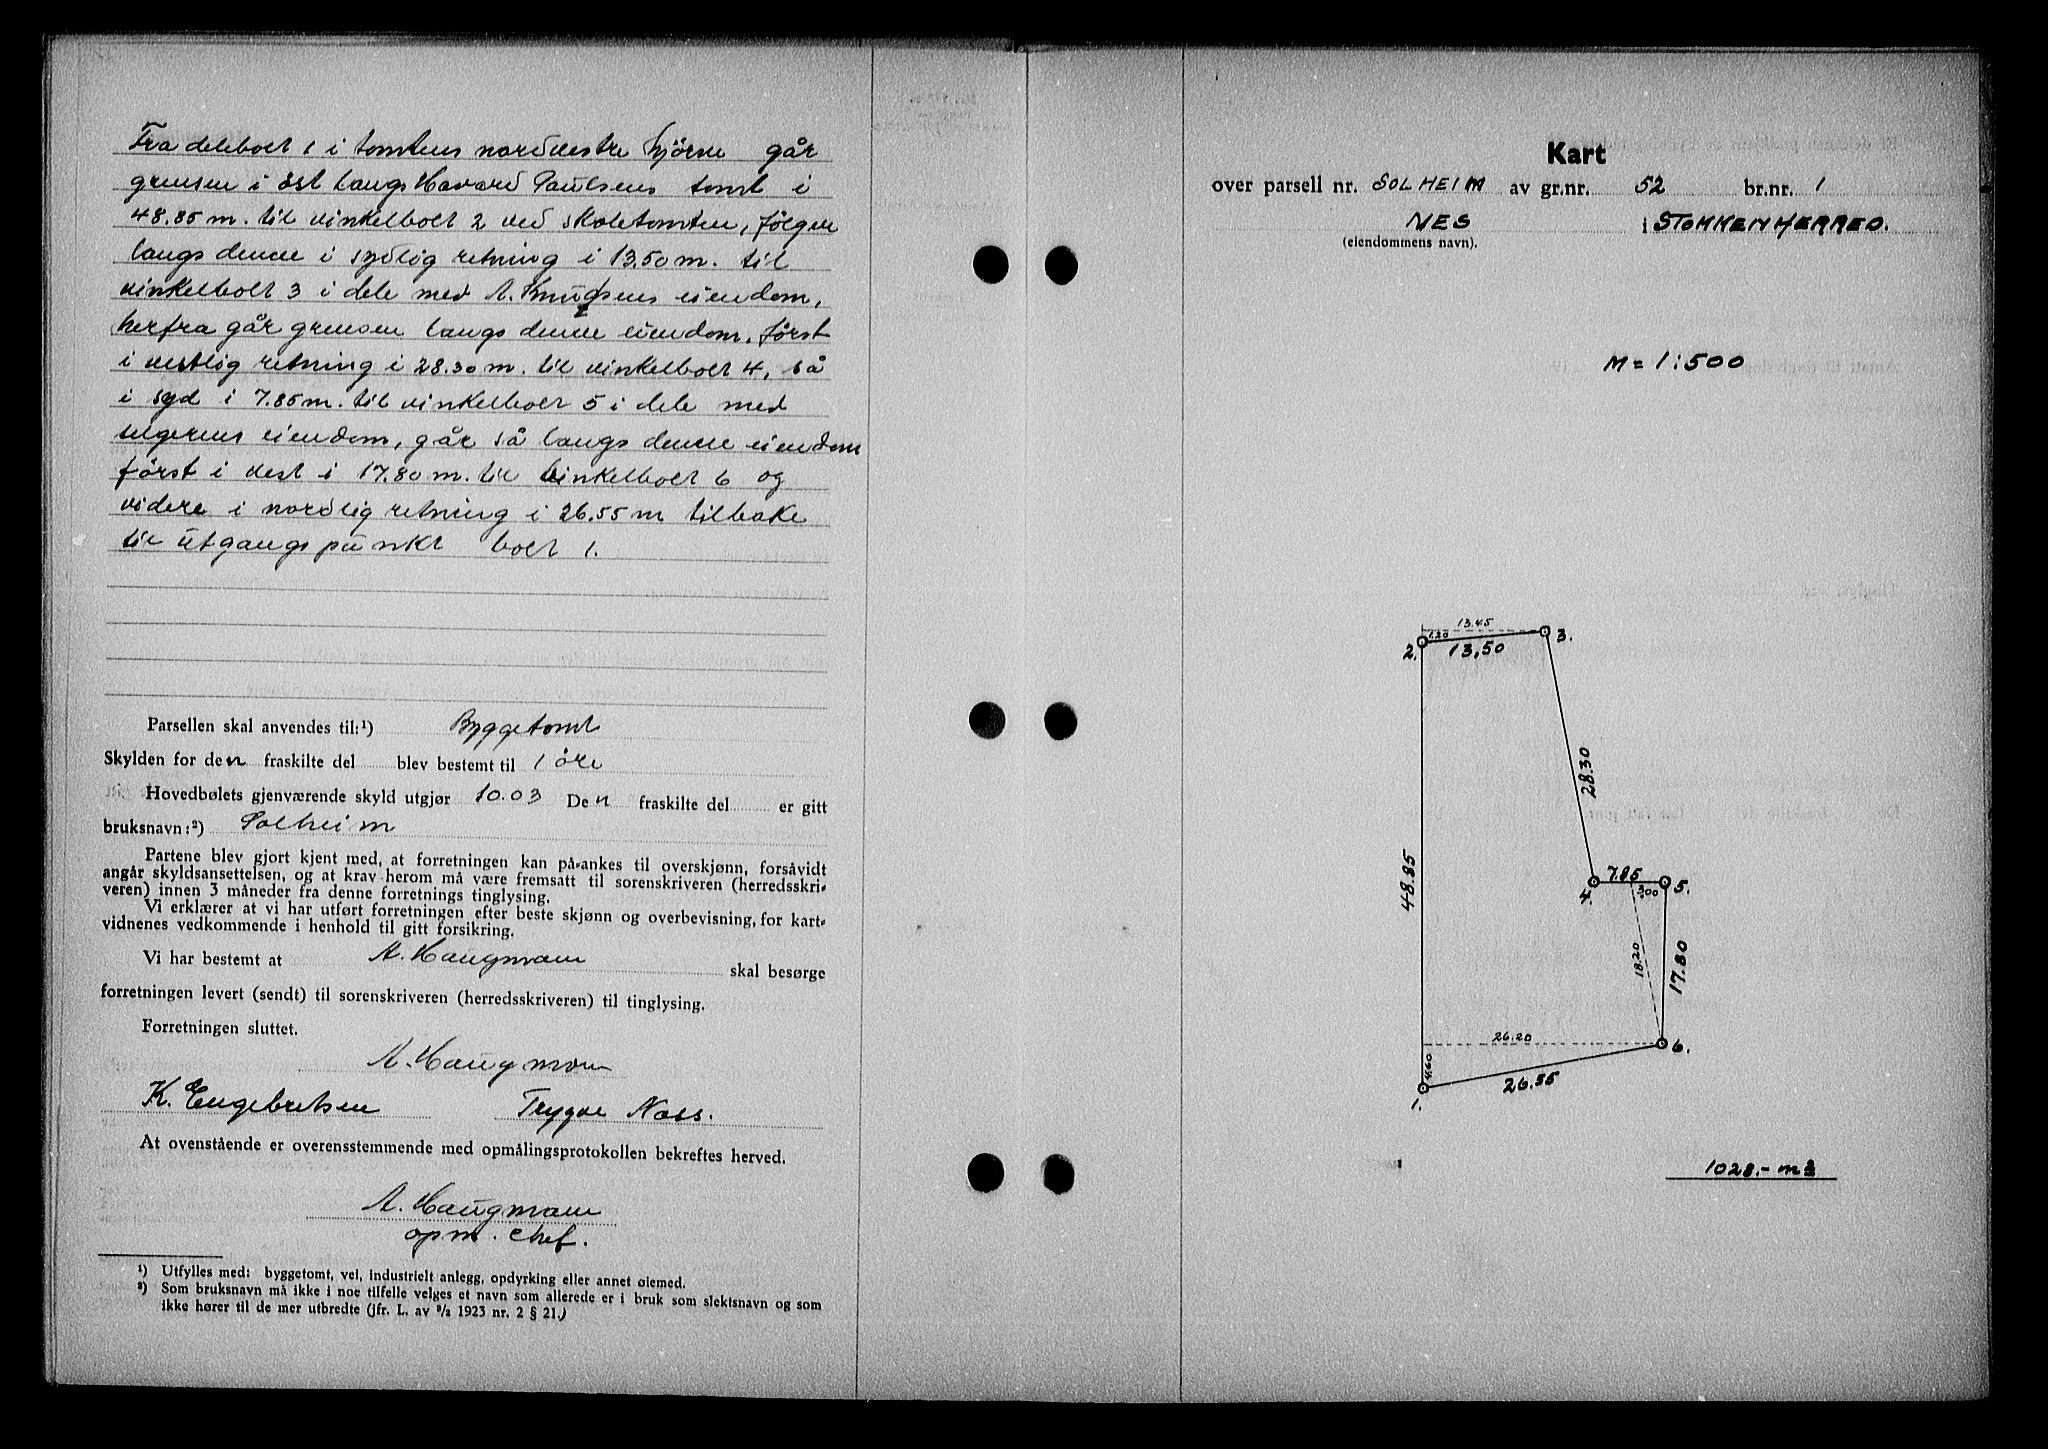 Fra delebolt 1 i tomtens nordvestre hjørne går
grensen i øst langs Havard Paulsens tomt i
48.85 m. til vinkelbolt 2 ved skoletomten, følger
langs denne i sydlig retning i 13.50 m. til
vinkelbolt 3 i dele med A. Knudsens eiendom,
herfra går grensen langs denne eiendom, først
i vestlig retning i 28.30 m. til vinkelbolt 4, så
i syd i 7.85 m. til vinkelbolt 5 i dele med
selgerens eiendom, går så langs denne eiendom
først i vest i 17.80 m. til vinkelbolt 6 og
videre i nordlig retning i 26.55 m tilbake
til utgangspunkt bolt 1.
Parsellen skal anvendes til:¹) Byggetomt
Skylden for den fraskilte del blev bestemt til 1 øre
Hovedbølets gjenværende skyld utgjør 10.03 Den fraskilte del er gitt
bruksnavn:²) Solheim
Partene blev gjort kjent med, at forretningen kan på-ankes til overskjønn, forsåvidt
angår skyldsansettelsen, og at krav herom må være fremsatt til sorenskriveren (herredsskri-
veren) innen 3 måneder fra denne forretnings tinglysing.
Vi erklærer at vi har utført forretningen efter beste skjønn og overbevisning, for kart-
vidnenes vedkommende i henhold til gitt forsikring.
Vi har bestemt at A. Haugmann skal besørge
forretningen levert (sendt) til sorenskriveren (herredsskriveren) til tinglysing.
Forretningen sluttet.
A. Haugmann
K. Engebretsen Trygve Næss.
At ovenstående er overensstemmende med opmålingsprotokollen bekreftes herved.
A. Haugmann
opm. chef.
¹) Utfylles med: byggetomt, vei, industrielt anlegg, opdyrking eller annet øiemed.
²) Som bruksnavn må ikke i noe tilfelle velges et navn som allerede er i bruk som slektsnavn og som
ikke hører til de mer utbredte (jfr. L. av ⁹/₂ 1923 nr. 2 § 21.)
Kart
over parsell nr. SOLHEIM av gr.nr. 52 br.nr. 1
NES i STOKKEN HERRED.
(eiendommens navn).
M = 1:500
13.45
2. 1.20 3.
13,50
28.30
48.85
7.85
4. 3.00 5.
18.20
17.80
26.20
6.
4.60
26.55
1.
1028.- m²